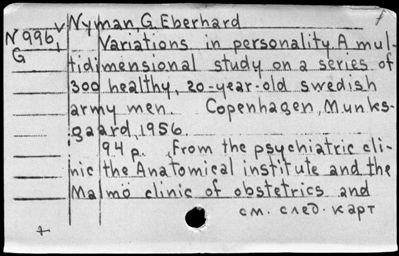 Nyman G. Eberhard
N 996 v/1
G
Variations in personality. A mul-
tidimensional study on a series of
300 healthy, 20-year-old swedish
army men. Copenhagen, Munks-
gaard, 1956.
94 p. From the psychiatric cli-
nic the Anatomical institute and the
Malmö clinic of obstetrics and
см. след. карт